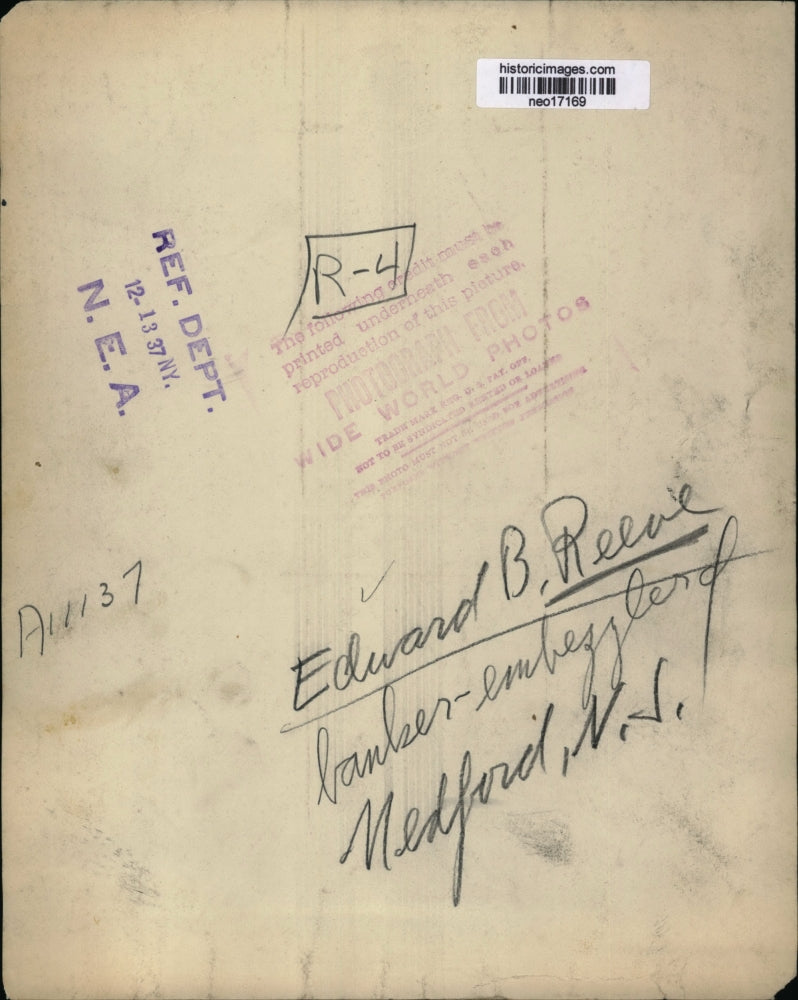 historicimages.com
neo17169
REF. DEPT.
12-13 37 NY.
N. E. A.
R-4
The following credit must be
printed underneath each
reproduction of this picture.
PHOTOGRAPH FROM
WIDE WORLD PHOTOS
TRADE MARK REG. U. S. PAT. OFF.
NOT TO BE SYNDICATED RENTED OR LOANED
THIS PHOTO MUST NOT BE USED FOR ADVERTISING
A11137
Edward B. Reeve
banker-embezzler
Medford, N.J.